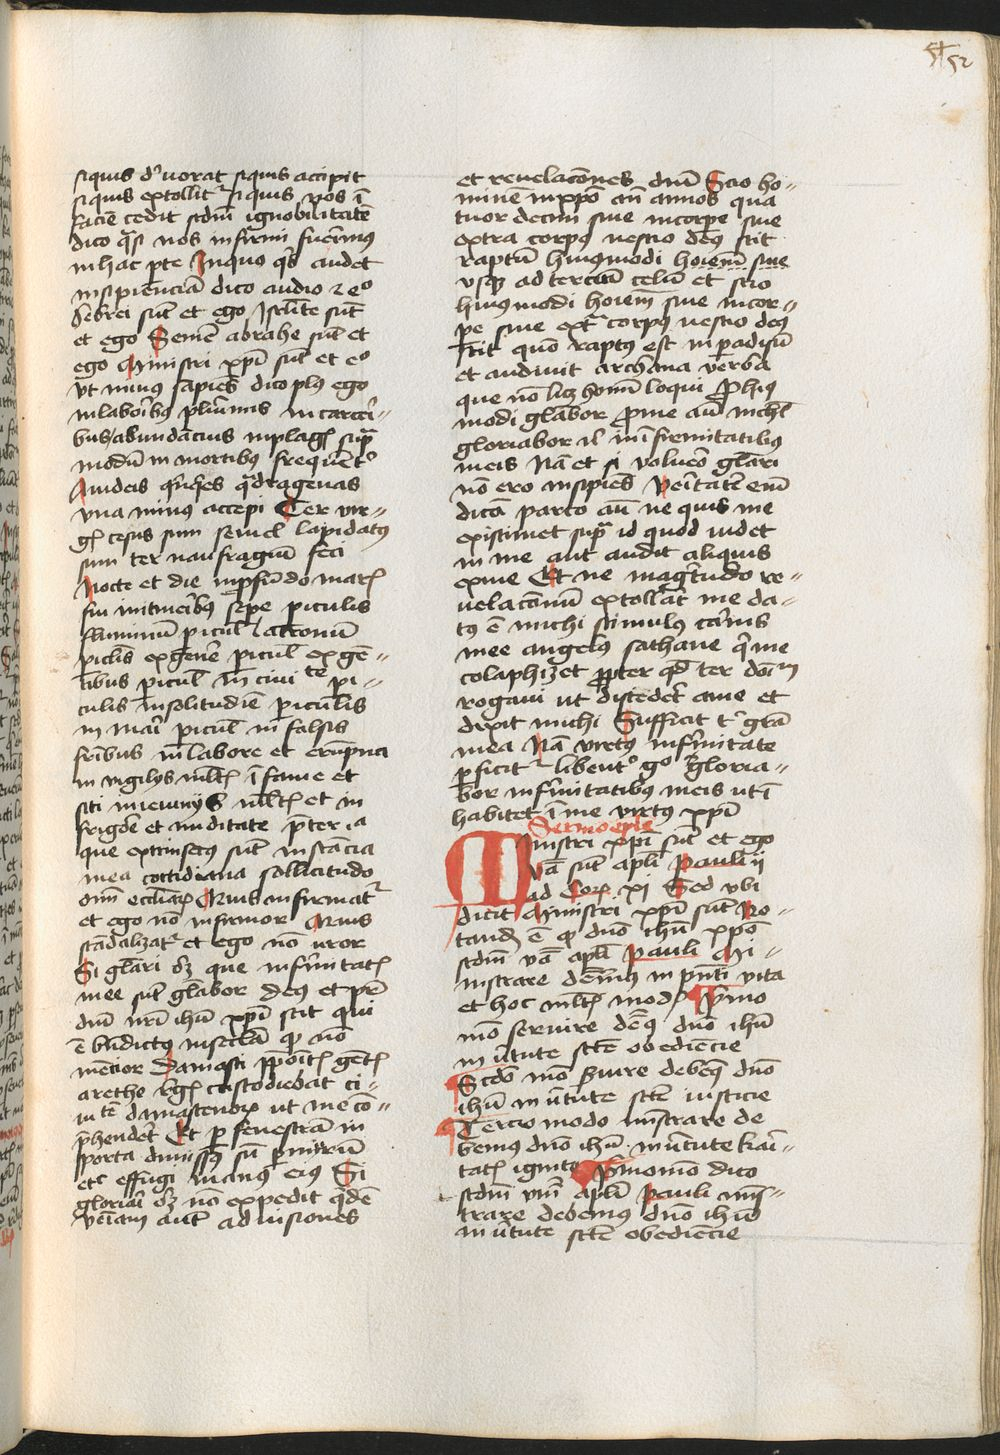 51 52
siquis d'uorat siquis accipit
siquis extollit² siquis vos ī
faciē cedit scdm̄ ignobilitatē
dico qͣsi nos infirmi fuerimꝰ
in hac pte Inquo qͥs audet
insipienciā dico audio ⁊ eᵒ
hebrei sūt et ego Isrl̄ite sūt
et ego Semē abrahe sūt et
ego Ministri xp̄i sūt et eᵒ
vt minus sapiēs dico plꝰ ego
in laboībꝰ plīmis in carceri-
bus habundācius in plagꝭ supͣ
modū in mortibus frequēt᾽
A iudeis qͥnqͥes qͣdragenas
vna minus accepi Ter vir-
gꝭ cesus sum semel lapidatꝰ
sum ter naufragiū feci
Nocte et die in pfūdo marꝭ
fui in itineribꝰ sepe piculis
fluminū picul latronū
piclis ex genere picul ex gē-
tibus picul in ciuitate pi-
culis in solitudīe piculis
in mari picul in falsis
fr̄ibus in labore et erupna
in vigilijs ml̄tꝭ ī fame et
siti in ieiunijs ml̄tꝭ et in
frigore et nuditate p̄ter ia
que extrinsecꝰ sūt instācia
mea cottidiana sollicitudo
om̄ ecclīaꝝ Quis infirmat²
et ego nō infirmor Quis
scādalizat² et ego nō uror
Si gl̄ari oꝫ que infirmitatꝭ
mee sūt gl̄abor Deꝰ et pr̄
dn̄i nr̄i ih̄u xp̄i scit qui
ē bn̄dictꝰ in secl̄a qꝫ nō
mēcior Damasci ppoītꝭ gētꝭ
arethe rēgꝭ custodiebat ci-
uitatē damascenoꝝ ut me cō-
phenderet Et p fenestrā in
sporta dimissꝰ sū p murū
etc effugi manꝰ eius Si
gloriari oꝫ nō expedit qͥdē
veniam aut ad visiones
et reuelacōnes dn̄i Scio ho-
minē in xpō an̄ annos qua
tuor decim siue in corpe siue
extra corpꝰ nescio deꝰ scit
raptū huiusmodi hoiem̄ siue
vsqꝫ ad terciū celū et scio
huiusmodi hoiem̄ siue in cor-
pe siue extͣ corpꝰ nescio deꝰ
scit quō raptꝰ est in padisū
et audiuit archana verba
que nō licꝫ homī loqui Pro hiꝰ
modi gl̄abor Pro me aūt nichil
gloriabor nl̄ in īfirmitatibus
meis Nā et si voluero gl̄ari
nō ero insipiēs Veritatē em̄
dicā parco aūt ne quis me
existimet supͣ id quod uidet
in me aut audit aliquis
ex me Et ne magͥtudo re-
uelacionū extollat me da-
tꝰ ē michi stimulus carnis
mee angelꝰ sathane qͥ me
colaphizet ppter qd ter dōm
rogaui ut discederet a me et
dixit michi Sufficit tͥ grā
mea Nā virtꝰ in infirmitate
pficit² libent᾽ gᵒ gloria-
bor in infirmitatibus meis ut ī
habitet ī me virtus xp̄i
Sermo eple
Ministri xp̄i sūt et ego
Vā sūt apl̄i Pauli ij
ad Corꝝ xi Sed vbi
dicit Ministri xp̄i sūt No-
tandꝫ ē qꝫ dn̄o ih̄u xpō
scdm̄ vā apl̄i Pauli Mi-
nistrare dem̄us in pn̄ti vita
et hoc ml̄tꝭ mod Pͥmo
mō seruire debemꝰ dn̄o ih̄u
in v̄tute scē obediēcie
Scdo mō s̄uire debemꝰ dn̄o
ih̄u in v̄tute scē iusticie
Tercio modo mīstrare de
bemus dn̄o ih̄u in v̄tute kari-
tatꝭ ignito Pͥmo mō dico
scdm̄ vm̄ apl̄i Pauli mīs-
trare debemus dn̄o ih̄u
in v̄tute scē obediēcie